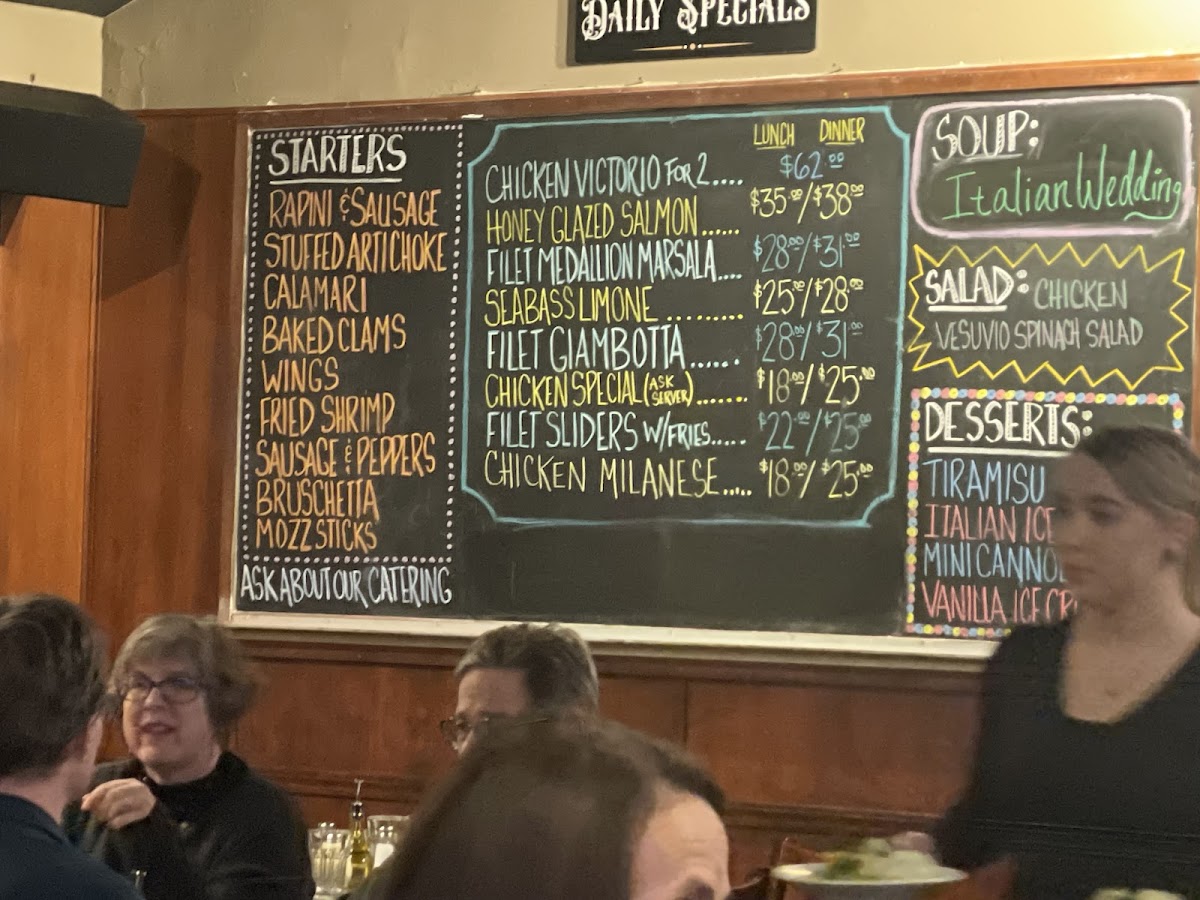 DAILY SPECIALS
STARTERS
RAPINI & SAUSAGE
STUFFED ARTICHOKE
CALAMARI
BAKED CLAMS
WINGS
FRIED SHRIMP
SAUSAGE & PEPPERS
BRUSCHETTA
MOZZ STICKS
ASK ABOUT OUR CATERING
LUNCH DINNER
CHICKEN VICTORIO FOR 2.... $62.00
HONEY GLAZED SALMON...... $35.00/$38.00
FILET MEDALLION MARSALA.... $28.00/$31.00
SEABASS LIMONE ......... $25.00/$28.00
FILET GIAMBOTTA...... $28.00/$31.00
CHICKEN SPECIAL (ASK SERVER)....... $18.00/$25.00
FILET SLIDERS W/FRIES..... $22.00/$25.00
CHICKEN MILANESE..... $18.00/$25.00
SOUP:
Italian Wedding
SALAD: CHICKEN
VESUVIO SPINACH SALAD
DESSERTS:
TIRAMISU
ITALIAN ICE
MINI CANNO
VANILLA ICE CR